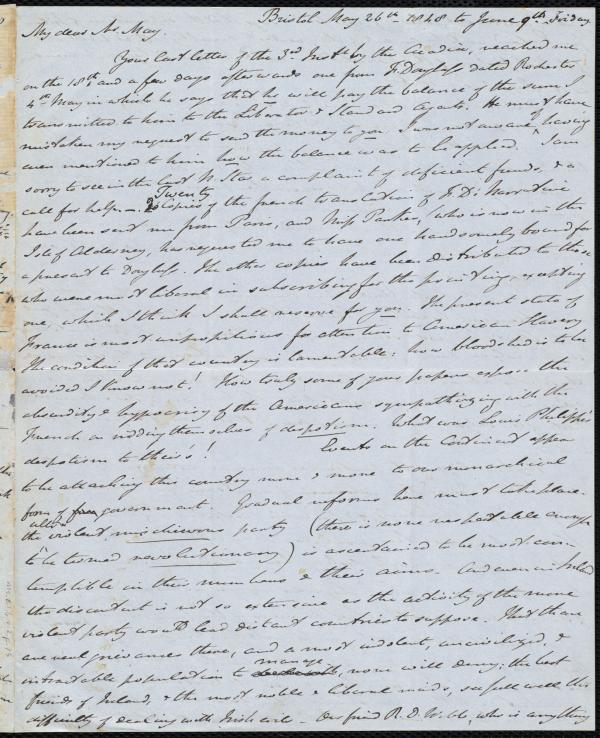 Bristol May 26th 1848 to June 9th Friday
My dear Mr May.
Your last letter of the 3rd Inst by the Acadia, reached me
on the 18th and a few days afterwards one from F. Douglass dated Rochester
4th May in which he says that he will pay the balance of the sum I
transmitted to him to the Liberator & Standard agents. He must have
mistaken my request to send the money to you. I was not aware of having
even mentioned to him how the balance was to be applied. I am
sorry to see in the last N. Star a complaint of deficient funds, & a
call for help. — Twenty copies of the french translation of F. D's Narrative
have been sent me from Paris, and Miss Parker, (who is now in the
Isle of Alderney, has requested me to have one handsomely bound for
a present to Douglass. The other copies have been distributed to those
who were most liberal in subscribing for the printing, excepting
one, which I think I shall reserve for you. The present state of
France is most unpropitious for attention to American Slavery
The condition of that country is lamentable: how bloodshed is to be
avoided I know not! How truly some of your papers expose the
absurdity & hypocrisy of the Americans sympathizing with the
French on ridding themselves of despotism. What was Louis Philippe's
despotism to theirs!  Events on the Continent appear
to be attaching this country more & more to our monarchical
form of government. Gradual reforms have must take place.
the ultra violent mischievous party (there is none respectable enough
to be termed revolutionary) is ascertained to be most con-
temptible in their numbers & their aims. And even in Ireland
the discontent is not so extensive as the activity of the more
violent party would lead distant countries to suppose. That there
are real grievances there, and a most indolent, uncivilized, &
intractable population to manage, none will deny; the best
friends of Ireland, & the most noble & liberal minds, see full well the
difficulty of dealing with Irish evils — Our friend R. D. Webb, who is anything